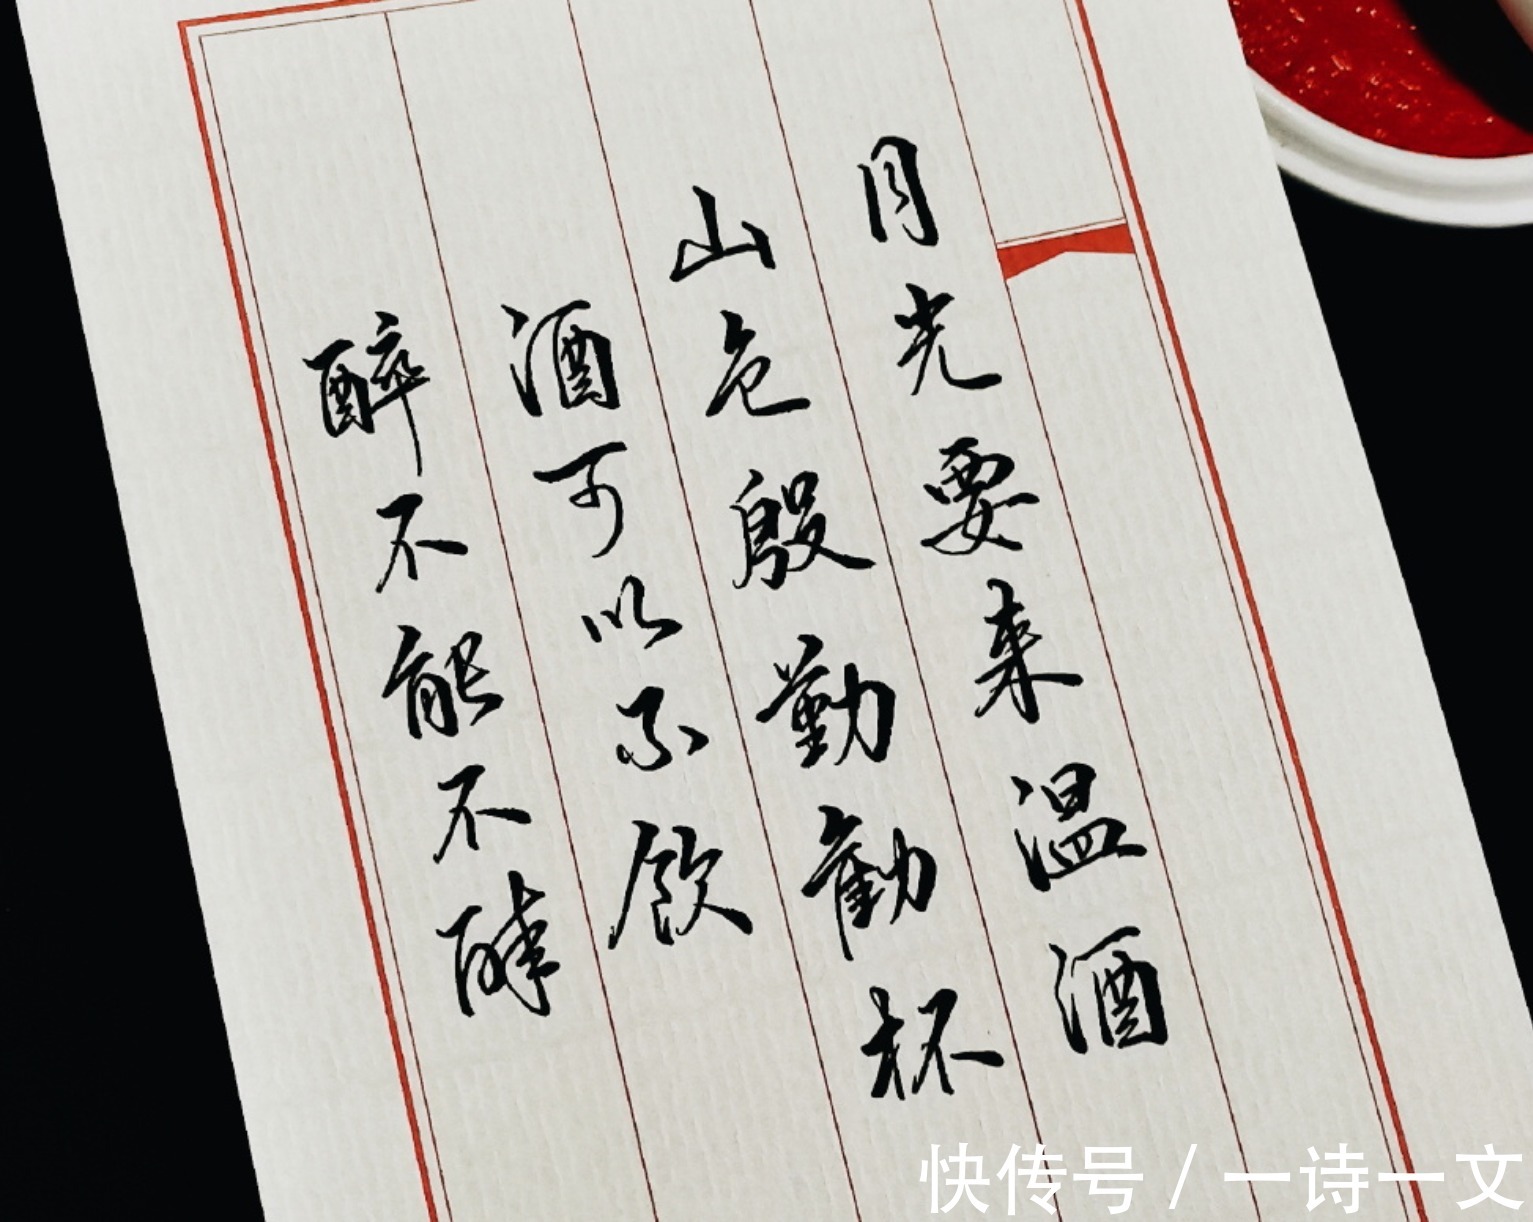 月光要来温酒
山色殷勤勸杯
酒可以不飲
醉不能不酵
快传号 / 一诗一文